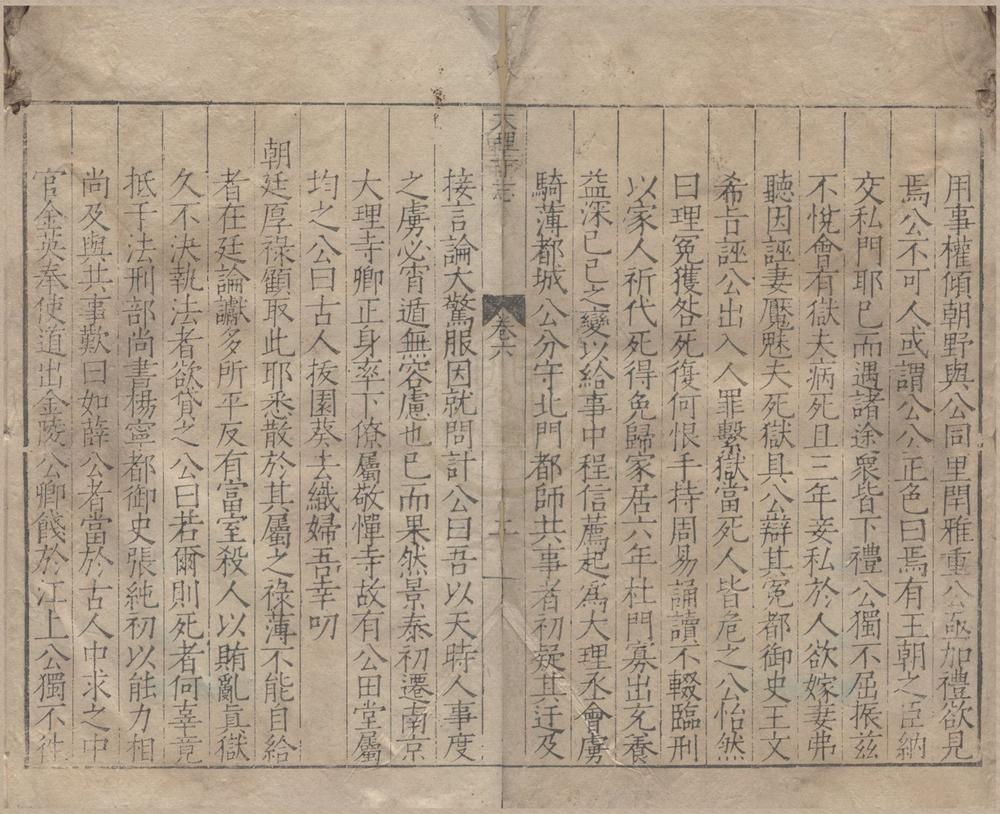 用事權傾朝野與公同里閈雅重公亟加禮欲見
焉公不可人或謂公公正色曰焉有王朝之臣納
交私門耶已而遇諸途衆皆下禮公獨不屈振茲
不悅會有獄夫病死且三年妾私於人欲嫁妻弗
聽因誣妻魘魅夫死獄具公辯其冤都御史王文
希旨誣公出入人罪繫獄當死人皆危之公怡然
曰理冤獲咎死復何恨手持周易誦讀不輟臨刑
以家人祈代死得免歸家居六年杜門寡出充養
益深己巳之變以給事中程信薦起為大理丞會虜
騎薄都城公分守北門都師共事者初疑其迂及
大理寺志
卷六
接言論大驚服因就問計公曰吾以天時人事度
之虜必宵遁無容慮也已而果然景泰初遷南京
大理寺卿正身率下僚屬敬憚寺故有公田堂屬
均之公曰古人拔園葵去織婦吾幸叨
朝廷厚祿顧取此耶悉散於其屬之祿薄不能自給
者在廷論讞多所平反有富室殺人以賄亂眞獄
久不決執法者欲貸之公曰若爾則死者何辜竟
抵于法刑部尚書楊寧都御史張純初以能力相
尚及與共事歎曰如薛公者當於古人中求之中
官金英奉使道出金陵公卿餞於江上公獨不徃